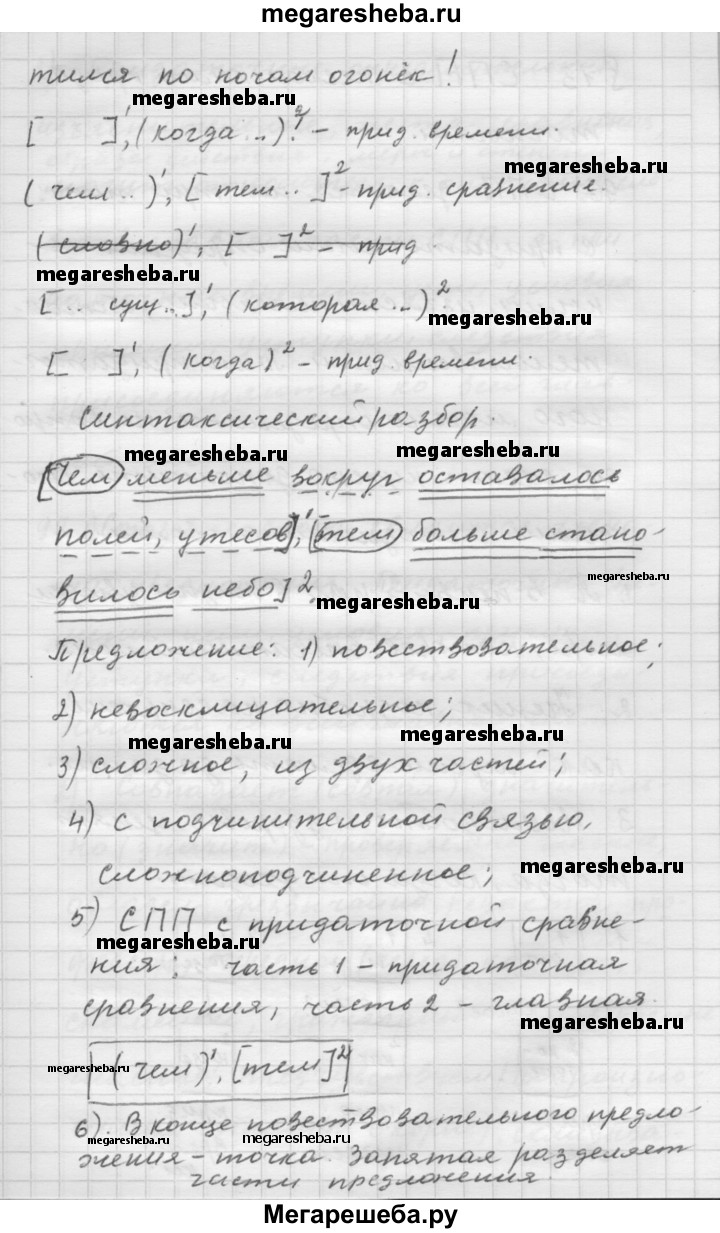 megaresheba.ru
тился по ночам огонёк!
megaresheba.ru
[ ]¹, (когда ..)²! – прид. времени.
megaresheba.ru
(чем ..)¹, [тем ..]² – прид. сравнение.
(словно)¹, [ ]² – прид.
megaresheba.ru
[.. сущ ..]¹, (которая ..)²
megaresheba.ru
[ ]¹, (когда)² – прид. времени.
Синтаксический разбор.
megaresheba.ru megaresheba.ru
[Чем меньше вокруг оставалось
полей, утесов]¹, [тем больше стано-
megaresheba.ru
вилось небо]².
megaresheba.ru
Предложение: 1) повествовательное;
2) невосклицательное;
megaresheba.ru megaresheba.ru
3) сложное, из двух частей;
4) с подчинительной связью,
сложноподчиненное;
megaresheba.ru
5) СПП с придаточной сравне-
megaresheba.ru
ния; часть 1 – придаточная
сравнения, часть 2 – главная.
megaresheba.ru
(чем)¹, [тем]²
megaresheba.ru
6). В конце повествовательного предло-
megaresheba.ru megaresheba.ru
жения – точка. Запятая разделяет
части предложения.
Мегарешеба.ру